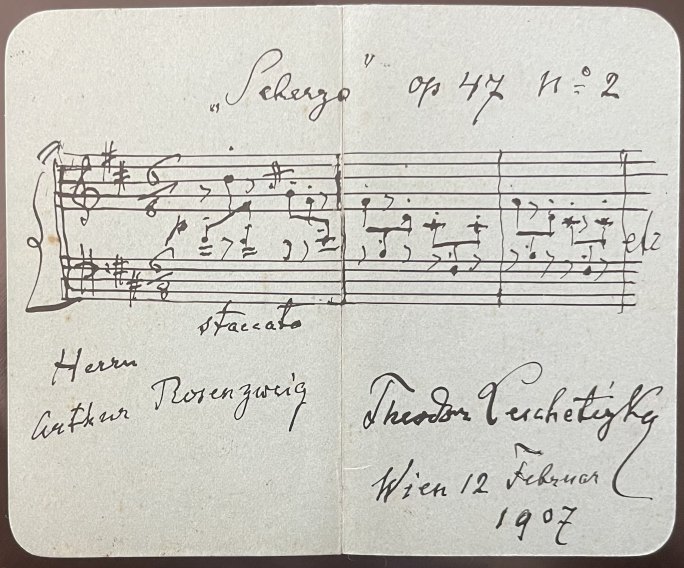 „Scherzo" op 47 No 2
6 8
p
6 8
etz
staccato
Herrn
Arthur Rosenzweig
Theodor Leschetizky
Wien 12 Februar
1907